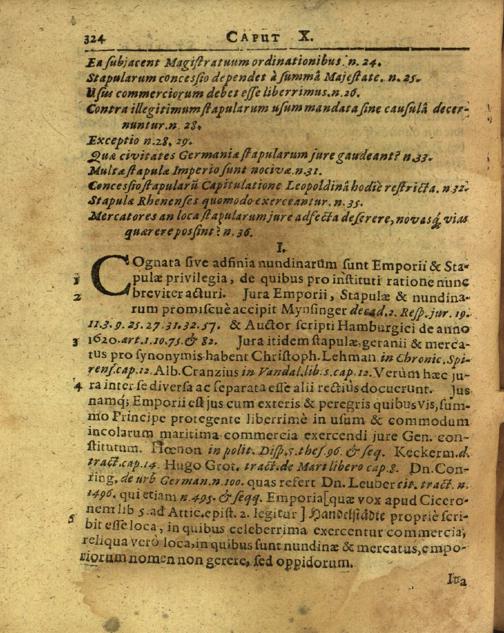 324 CAPUT X.
Ea subjacent Magistratuum ordinationibus. n. 24.
Stapularum concessio dependet à summâ Majestate. n. 25.
Usus commerciorum debet esse liberrimus. n. 26.
Contra illegitimum stapularum usum mandata sine causulâ decer-
nuntur. n. 28.
Exceptio n. 28. 29.
Quæ civitates Germaniæ stapularum jure gaudeant? n. 33.
Multæ stapulæ Imperio sunt nocivæ. n. 31.
Concessio stapularũ Capitulatione Leopoldinâ hodiè restricta. n. 32.
Stapulæ Rhenenses quomodo exerceantur. n. 35.
Mercatores an loca stapularum jure adfecta deserere, novasq́, vias
quærere possint? n. 36.
I.
COgnata sive adfinia nundinarum sunt Emporii & Sta-
1 pulæ privilegia, de quibus pro instituti ratione nunc
2 breviter acturi. Jura Emporii, Stapulæ & nundina-
rum promiscuè accipit Mynsinger decad. 2. Resp. jur. 19.
11. 3. 9. 25. 27. 31. 32. 57. & Auctor scripti Hamburgici de anno
3 1620. art. 1. 10. 75. & 82. Jura itidem stapulæ, geranii & merca-
tus pro synonymis habent Christoph. Lehman in Chronic. Spi-
rens. cap. 12. Alb. Cranzius in Vandal. lib. 5. cap. 12. Verùm hæc ju-
4 ra inter se diversa ac separata esse alii rectiùs docuerunt. Jus
namq; Emporii est jus cum exteris & peregris quibusvis, sum-
mo Principe protegente liberrimè in usum & commodum
incolarum maritima commercia exercendi jure Gen. con-
stitutum. Hœnon in polit. Disp. 5. thes. 96. & seq. Keckerm. d.
tract. cap. 14. Hugo Grot. tract. de Mari libero cap. 8. Dn. Con-
ring. de urb German. n. 100. quas refert Dn. Leuber cit. tract. n.
1496. qui etiam n. 495. & seqq. Emporia [quæ vox apud Cicero-
nem lib 5. ad Attic. epist. 2. legitur] Handelstädte propriè scri-
5 bit esse loca, in quibus celeberrima exercentur commercia,
reliqua verò loca, in quibus sunt nundinæ & mercatus, empo-
riorum nomen non gerere, sed oppidorum.
Ita